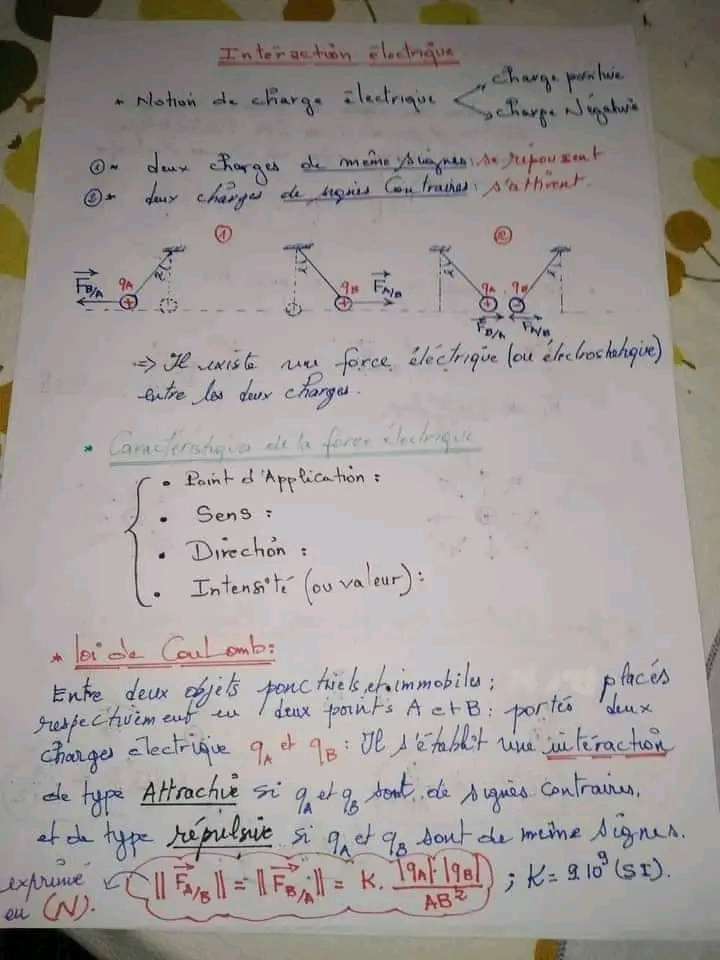 Interaction électrique
* Notion de charge électrique
charge positive
charge Négative
①- deux charges de même signes: se repoussent
②- deux charges de signes Contraires: s'attirent.
① ②
F B/A qA α α qB F A/B α qA qB α
F B/A F A/B
=> Il existe une force électrique (ou électrostatique)
entre les deux charges.
* Caractéristiques de la force électrique
• Point d'Application :
• Sens :
• Direction :
• Intensité (ou valeur) :
* Loi de Coulomb:
Entre deux objets ponctuels et immobiles; placés
respectivement en deux points A et B: portés deux
charges électrique qA et qB : Il s'établit une intéraction
de type Attractive si qA et qB sont de signes contraires,
et de type répulsive si qA et qB sont de même signes.
exprimé en (N). ||F A/B|| = ||F B/A|| = K. |qA|.|qB| / AB² ; K = 9.10⁹ (SI).